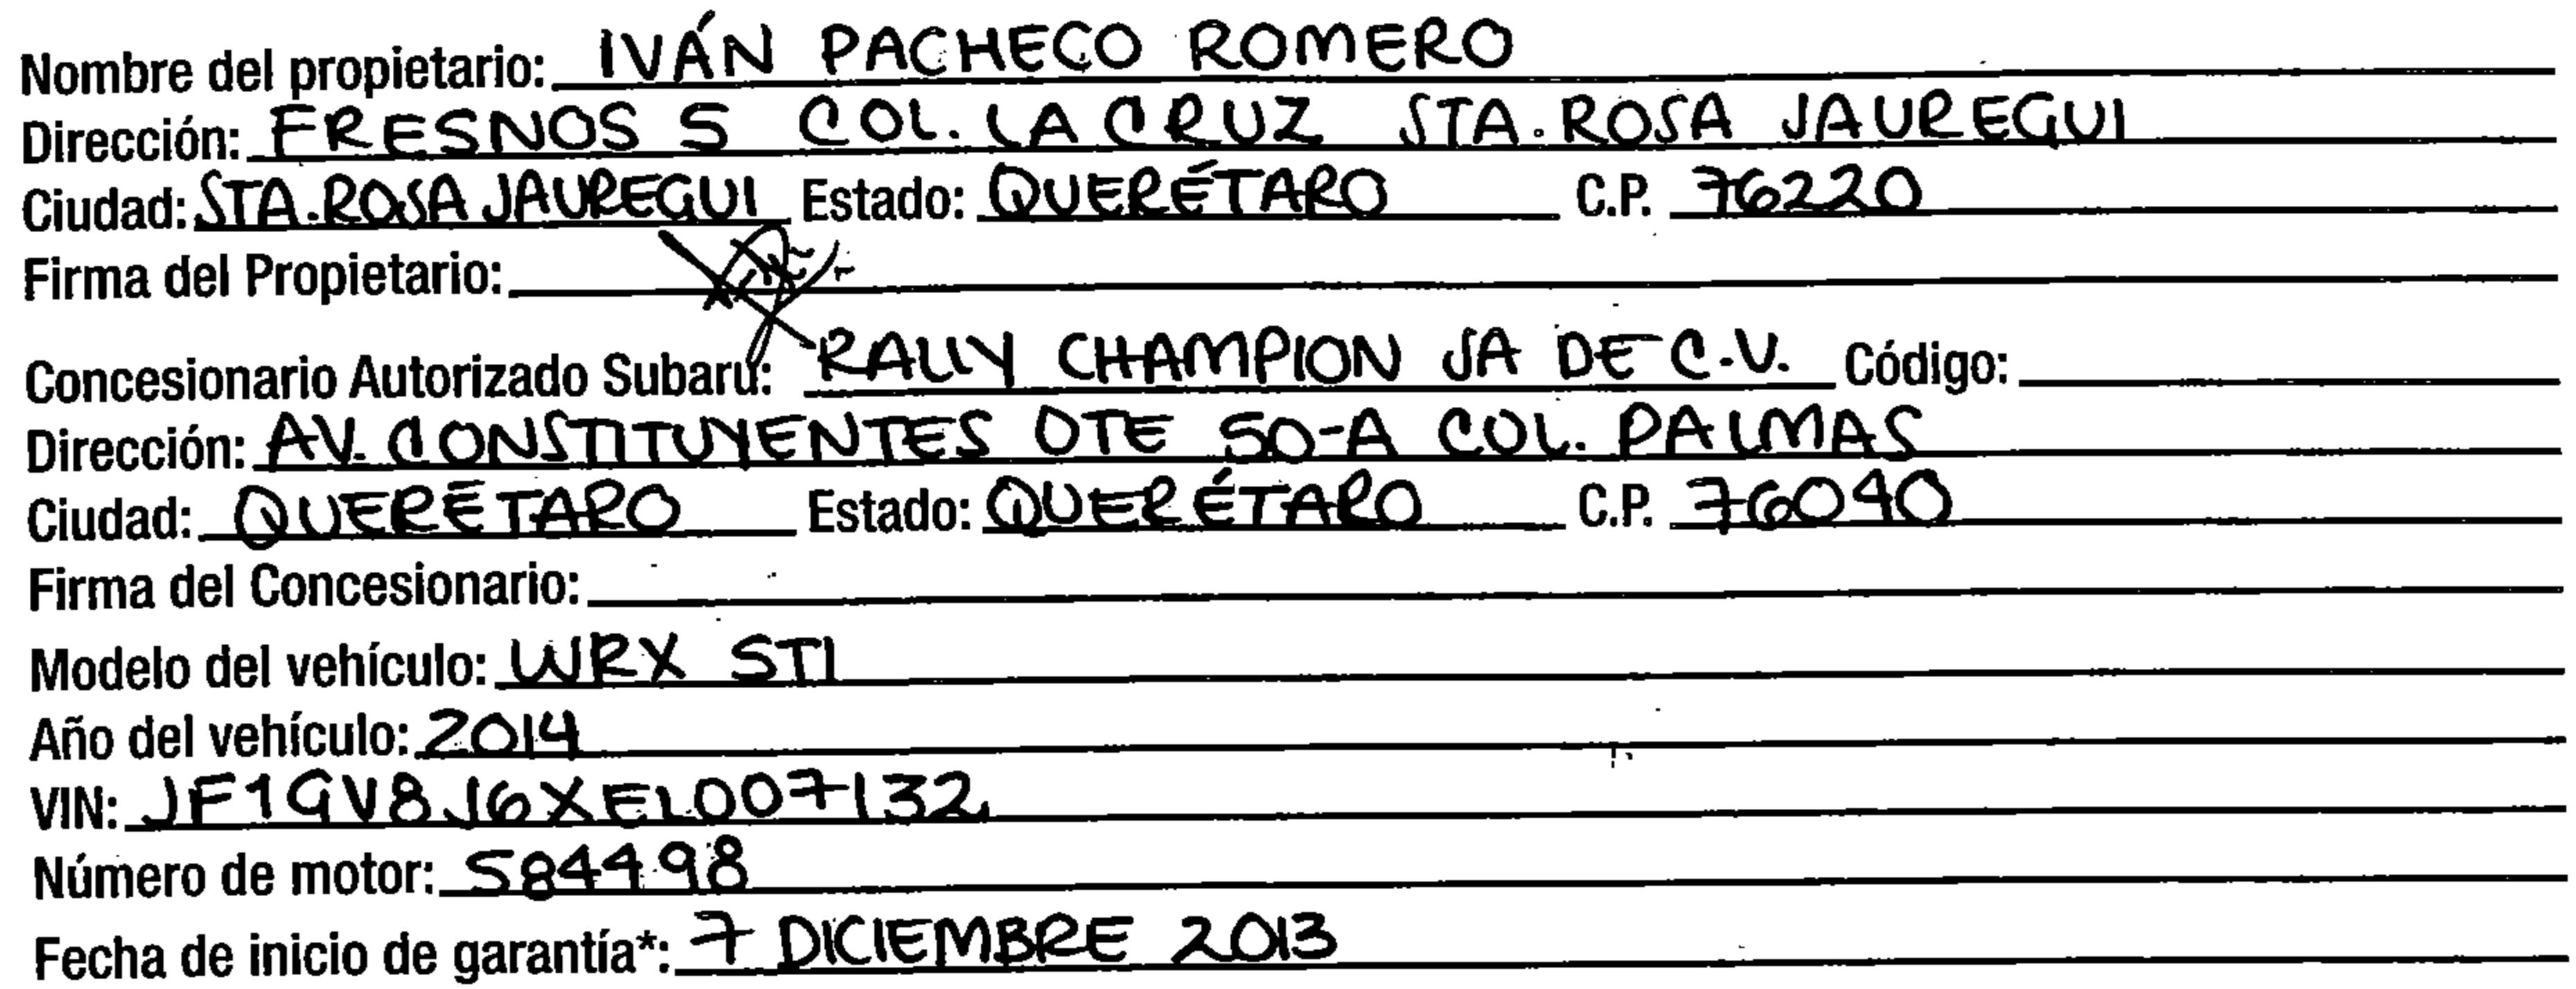 Nombre del propietario: IVÁN PACHECO ROMERO
Dirección: FRESNOS 5 COL. LA CRUZ STA. ROSA JAUREGUI
Ciudad: STA. ROSA JAUREGUI Estado: QUERÉTARO C.P. 76220
Firma del Propietario:
Concesionario Autorizado Subaru: RALLY CHAMPION SA DE C.V. Código:
Dirección: AV. CONSTITUYENTES OTE 50-A COL. PALMAS
Ciudad: QUERÉTARO Estado: QUERÉTARO C.P. 76040
Firma del Concesionario:
Modelo del vehículo: WRX STI
Año del vehículo: 2014
VIN: JF1GV8J6XEL007132
Número de motor: 584498
Fecha de inicio de garantía*: 7 DICIEMBRE 2013